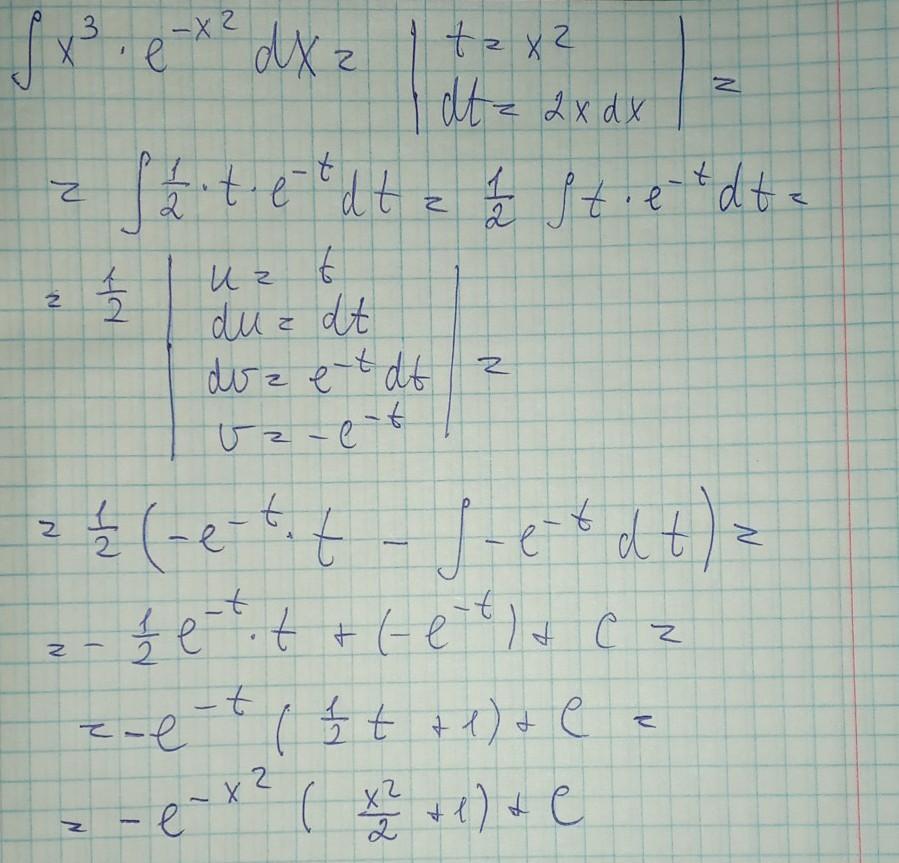 ∫ x³ · e^{-x²} dx = | t = x² ; dt = 2x dx | =
= ∫ 1/2 · t · e^{-t} dt = 1/2 ∫ t · e^{-t} dt =
= 1/2 | u = t
du = dt
dv = e^{-t} dt | =
v = -e^{-t}
= 1/2 (-e^{-t} · t - ∫ -e^{-t} dt) =
= - 1/2 e^{-t} · t + (-e^{-t}) + C =
= -e^{-t} (1/2 t + 1) + C =
= -e^{-x²} (x²/2 + 1) + C